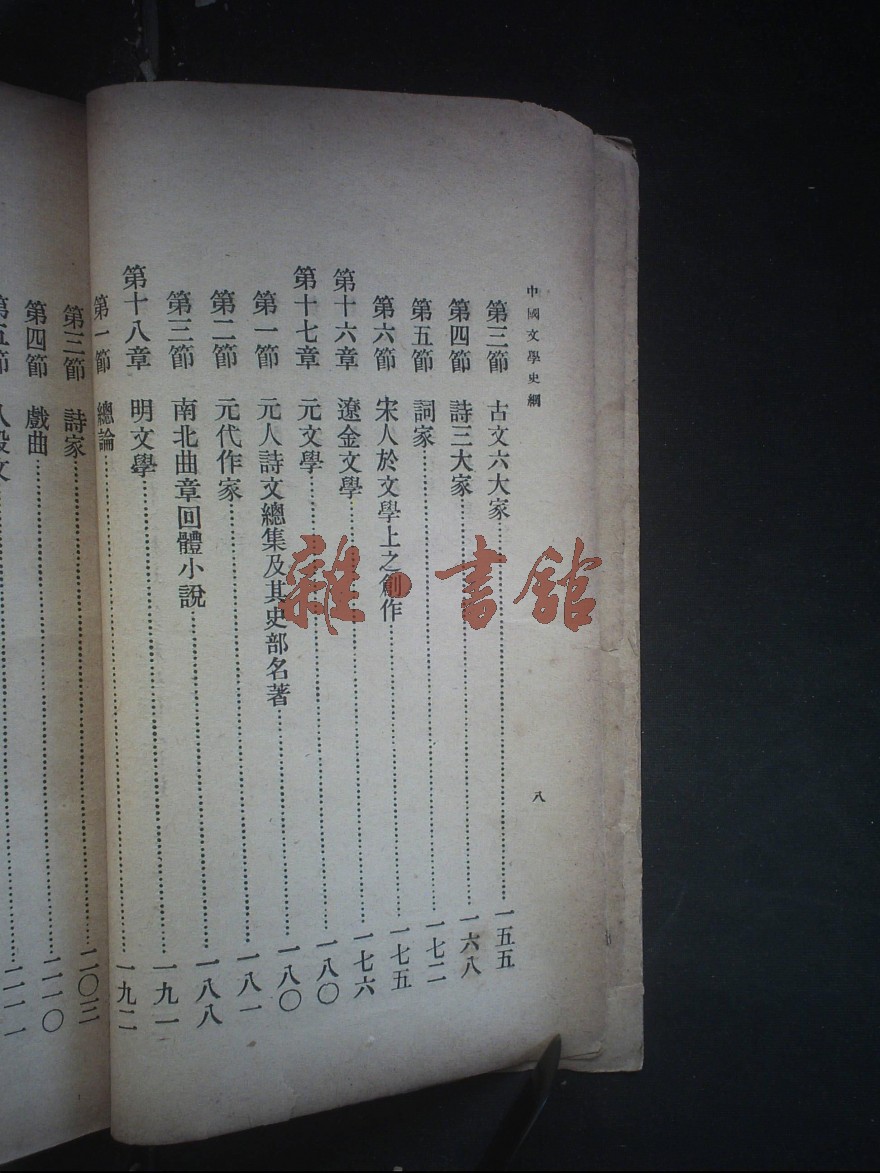 中國文學史綱
八
第三節 古文六大家 一五五
第四節 詩三大家 一六八
第五節 詞家 一七二
第六節 宋人於文學上之創作 一七五
第十六章 遼金文學 一七六
第十七章 元文學 一八〇
第一節 元人詩文總集及其史部名著 一八〇
第二節 元代作家 一八一
第三節 南北曲章回體小說 一八八
第十八章 明文學 一九一
第一節 總論 一九二
第三節 詩家 二〇三
第四節 戲曲 二一〇
第五節 八股文 二一一
雜·書館